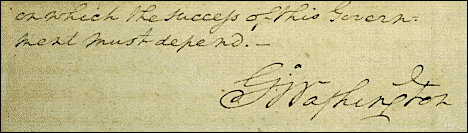 on which the success of this Govern-
ment must depend. —
G:Washington